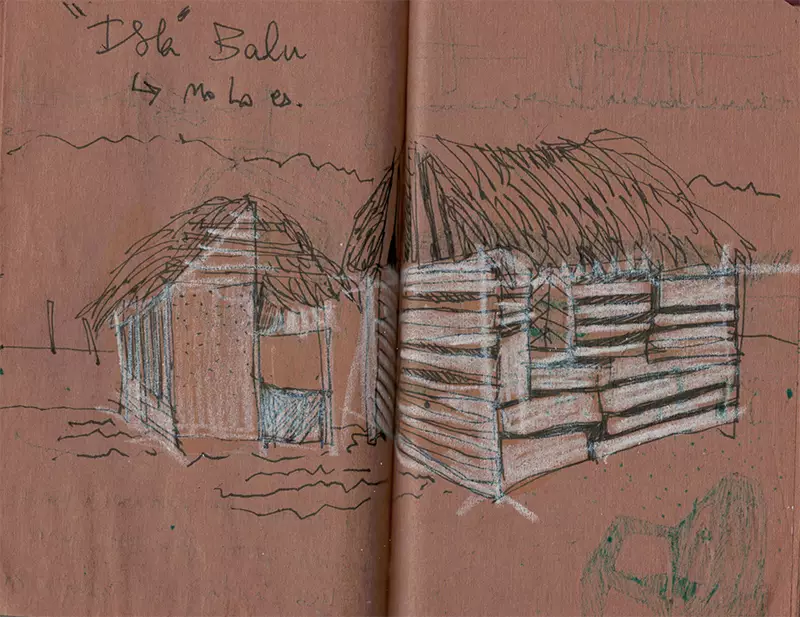 "Isla" Balu
↳ No Lo es.